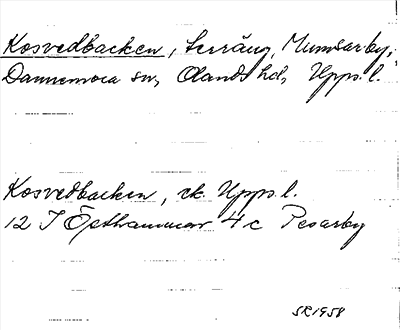 Kosvedbacken, terräng, Mumsarby,
Dannemora sn, Olands hd, Upps. l.
Kosvedbacken, ek. Upps. l.
12 I Östhammar 4 c Pesarby
SR1958